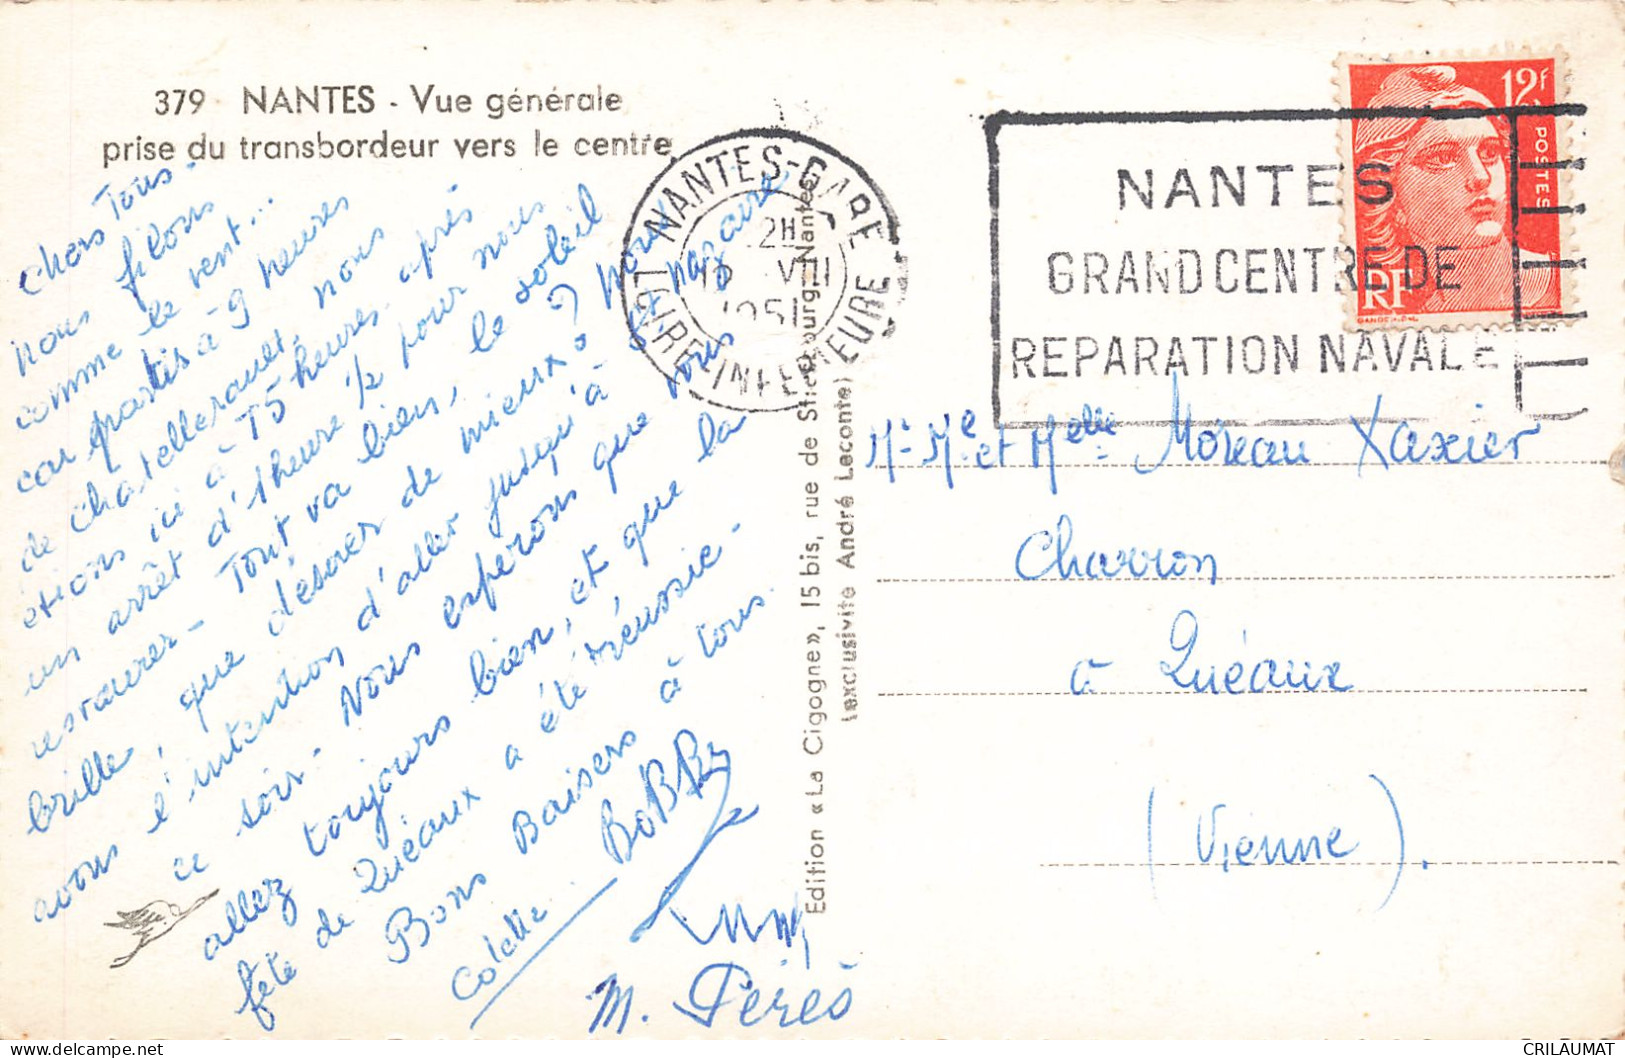 379 NANTES - Vue générale
prise du transbordeur vers le centre
Chers Tous -
nous filons
comme le vent...
car partis à 9 heures
de Chatellerault, nous
étions ici à 15 heures après
un arrêt d'1 heure 1/2 pour nous
restaurer - Tout va bien, le soleil
brille, que désirer de mieux? Nous
avons l'intention d'aller jusqu'à St Nazaire
ce soir - Nous esperons que vous
allez toujours bien, et que la
fête de Quéaux a été réussie -
Bons Baisers à tous.
Colette BOBBY
M. Pérès
Edition « La Cigogne », 15 bis, rue de Strasbourg - Nantes
(exclusivite André Leconte)
NANTES-GARE
LOIRE INFERIEURE
2H
VIII
1951
NANTES
GRAND CENTRE DE
REPARATION NAVALE
12F
POSTES
RF
GANDON
Mr. Me. et Melle Moreau Xaxier
Charron
à Quéaux
(Vienne).
CRILAUMAT